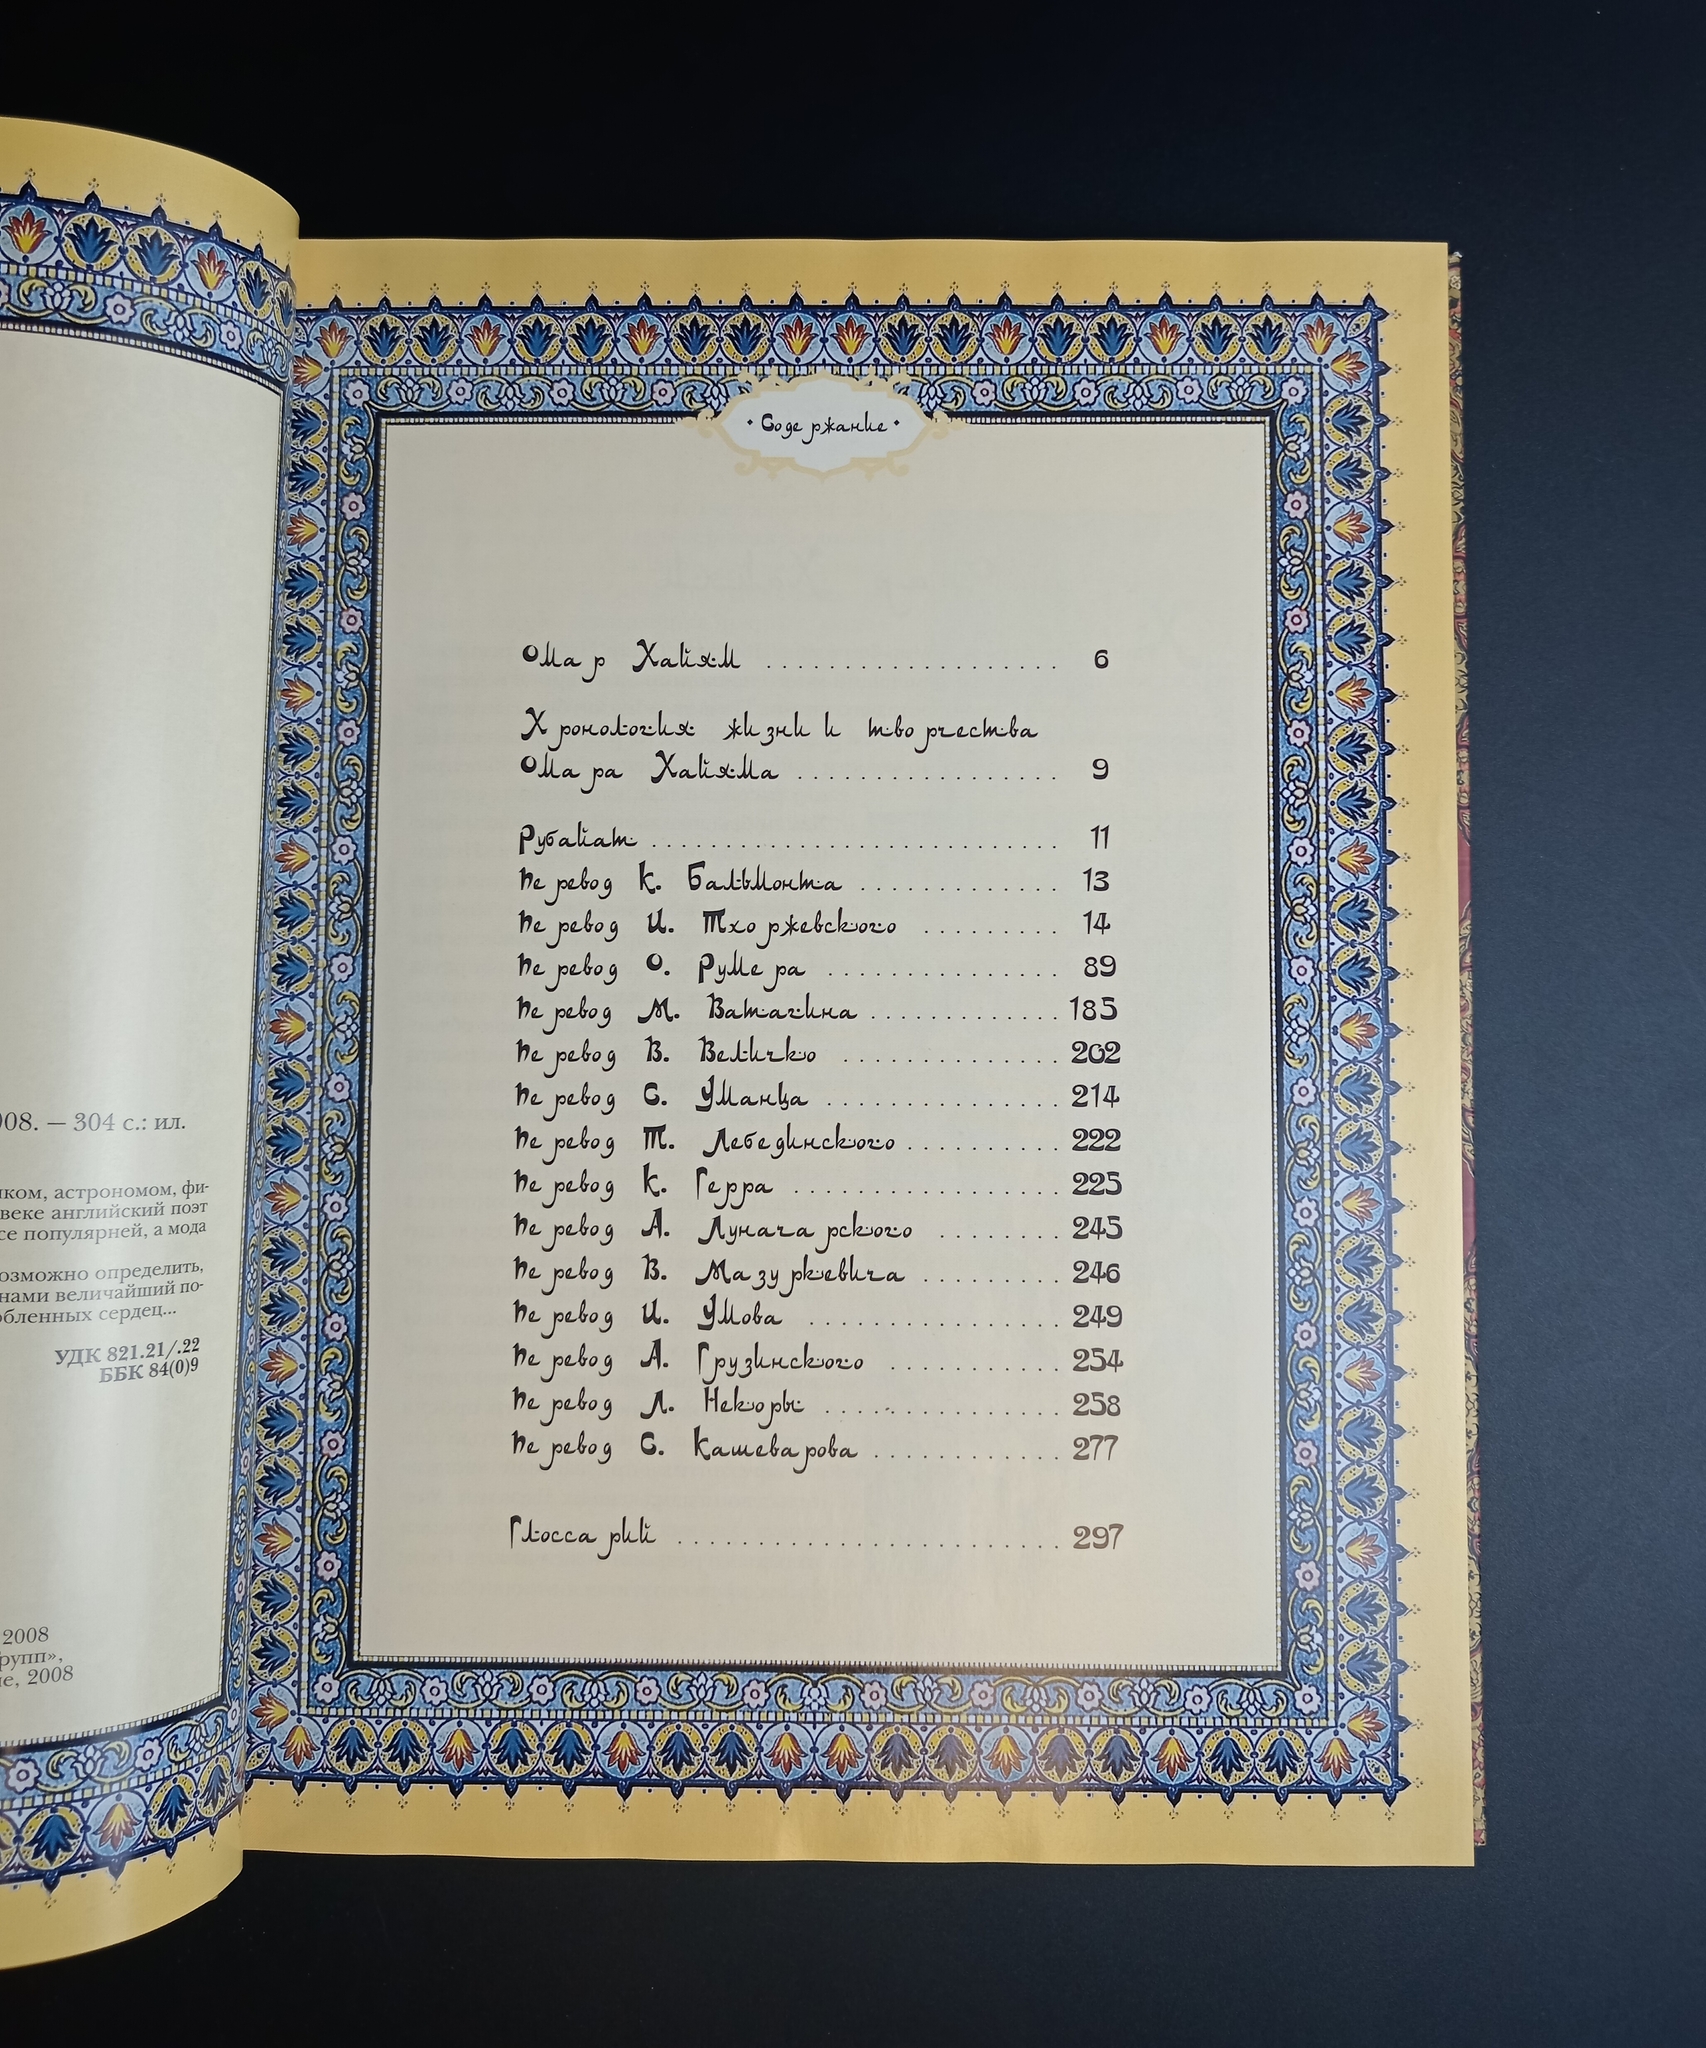 08. — 304 с.: ил.
астрономом, фи-
веке английский поэт
популярней, а мода
определить,
величайший по-
сердец...
УДК 821.21/.22
ББК 84(0)9
2008
2008
• Содержание •
Омар Хайям .................... 6
Хронология жизни и творчества
Омара Хайяма .................. 9
Рубайат ............................ 11
Перевод К. Бальмонта ............. 13
Перевод И. Тхоржевского ......... 14
Перевод О. Румера ................ 89
Перевод М. Ватагина ............. 185
Перевод В. Величко .............. 202
Перевод С. Уманца ............... 214
Перевод Т. Лебединского .......... 222
Перевод К. Герра ................. 225
Перевод А. Луначарского ......... 245
Перевод В. Мазуркевича .......... 246
Перевод И. Умова ................. 249
Перевод А. Грузинского ........... 254
Перевод Л. Некоры ................ 258
Перевод С. Кашеварова ............ 277
Глоссарий .......................... 297